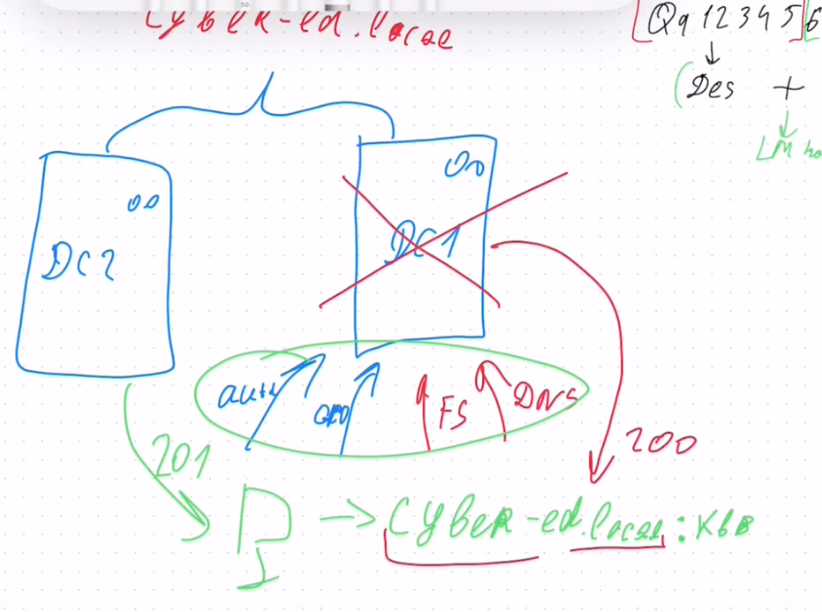 Cyber-ed.local
Qq12345]6
Des +
LM ha
DC2
DC1
auth
GPO
FS
DNS
201
200
→ Cyber-ed.local:КБВ